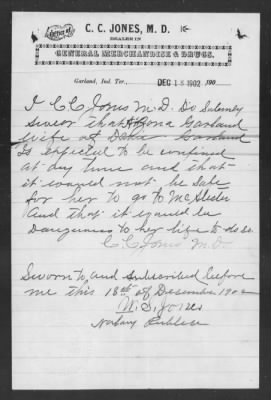 Office of
C. C. JONES, M. D.
DEALER IN
GENERAL MERCHANDISE & DRUGS.
Garland, Ind. Ter., DEC 18 1902 190
I C C Jones M.D. Do Solemly
swear that Garland
wife of Garland
Is expected to be confined
at any time and that
it would not be safe
for her to go to McAlester
And that it would be
Dangerous to her life to do so.
C C Jones M.D.
Sworn to and subscribed before
me this 18th of December 1902
W. S. Jones
Notary Publice